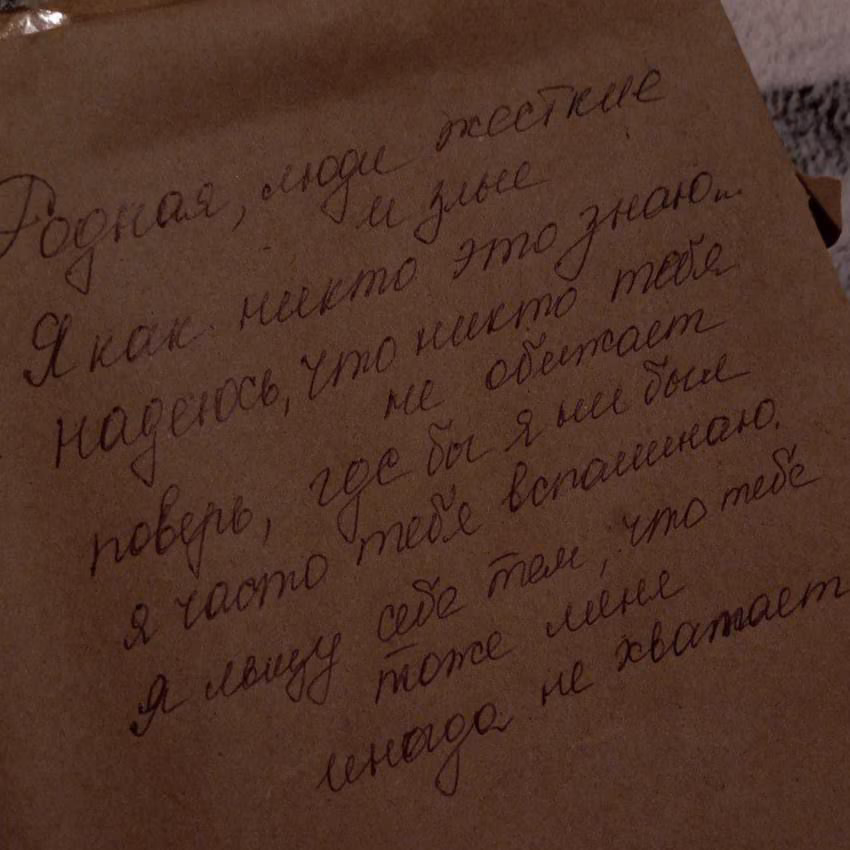 Родная, люди жесткие
и злые
Я как никто это знаю...
надеюсь, что никто тебя
не обижает
поверь, где бы я ни был
я часто тебя вспоминаю.
я льщу себе тем, что тебе
тоже меня
иногда не хватает